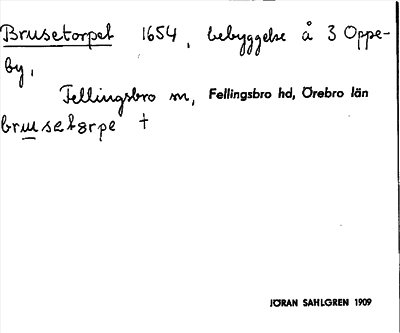 Brusetorpet 1654, bebyggelse å 3 Oppe-
by,
Fellingsbro sn, Fellingsbro hd, Örebro län
brusetɷrpe †
JÖRAN SAHLGREN 1909